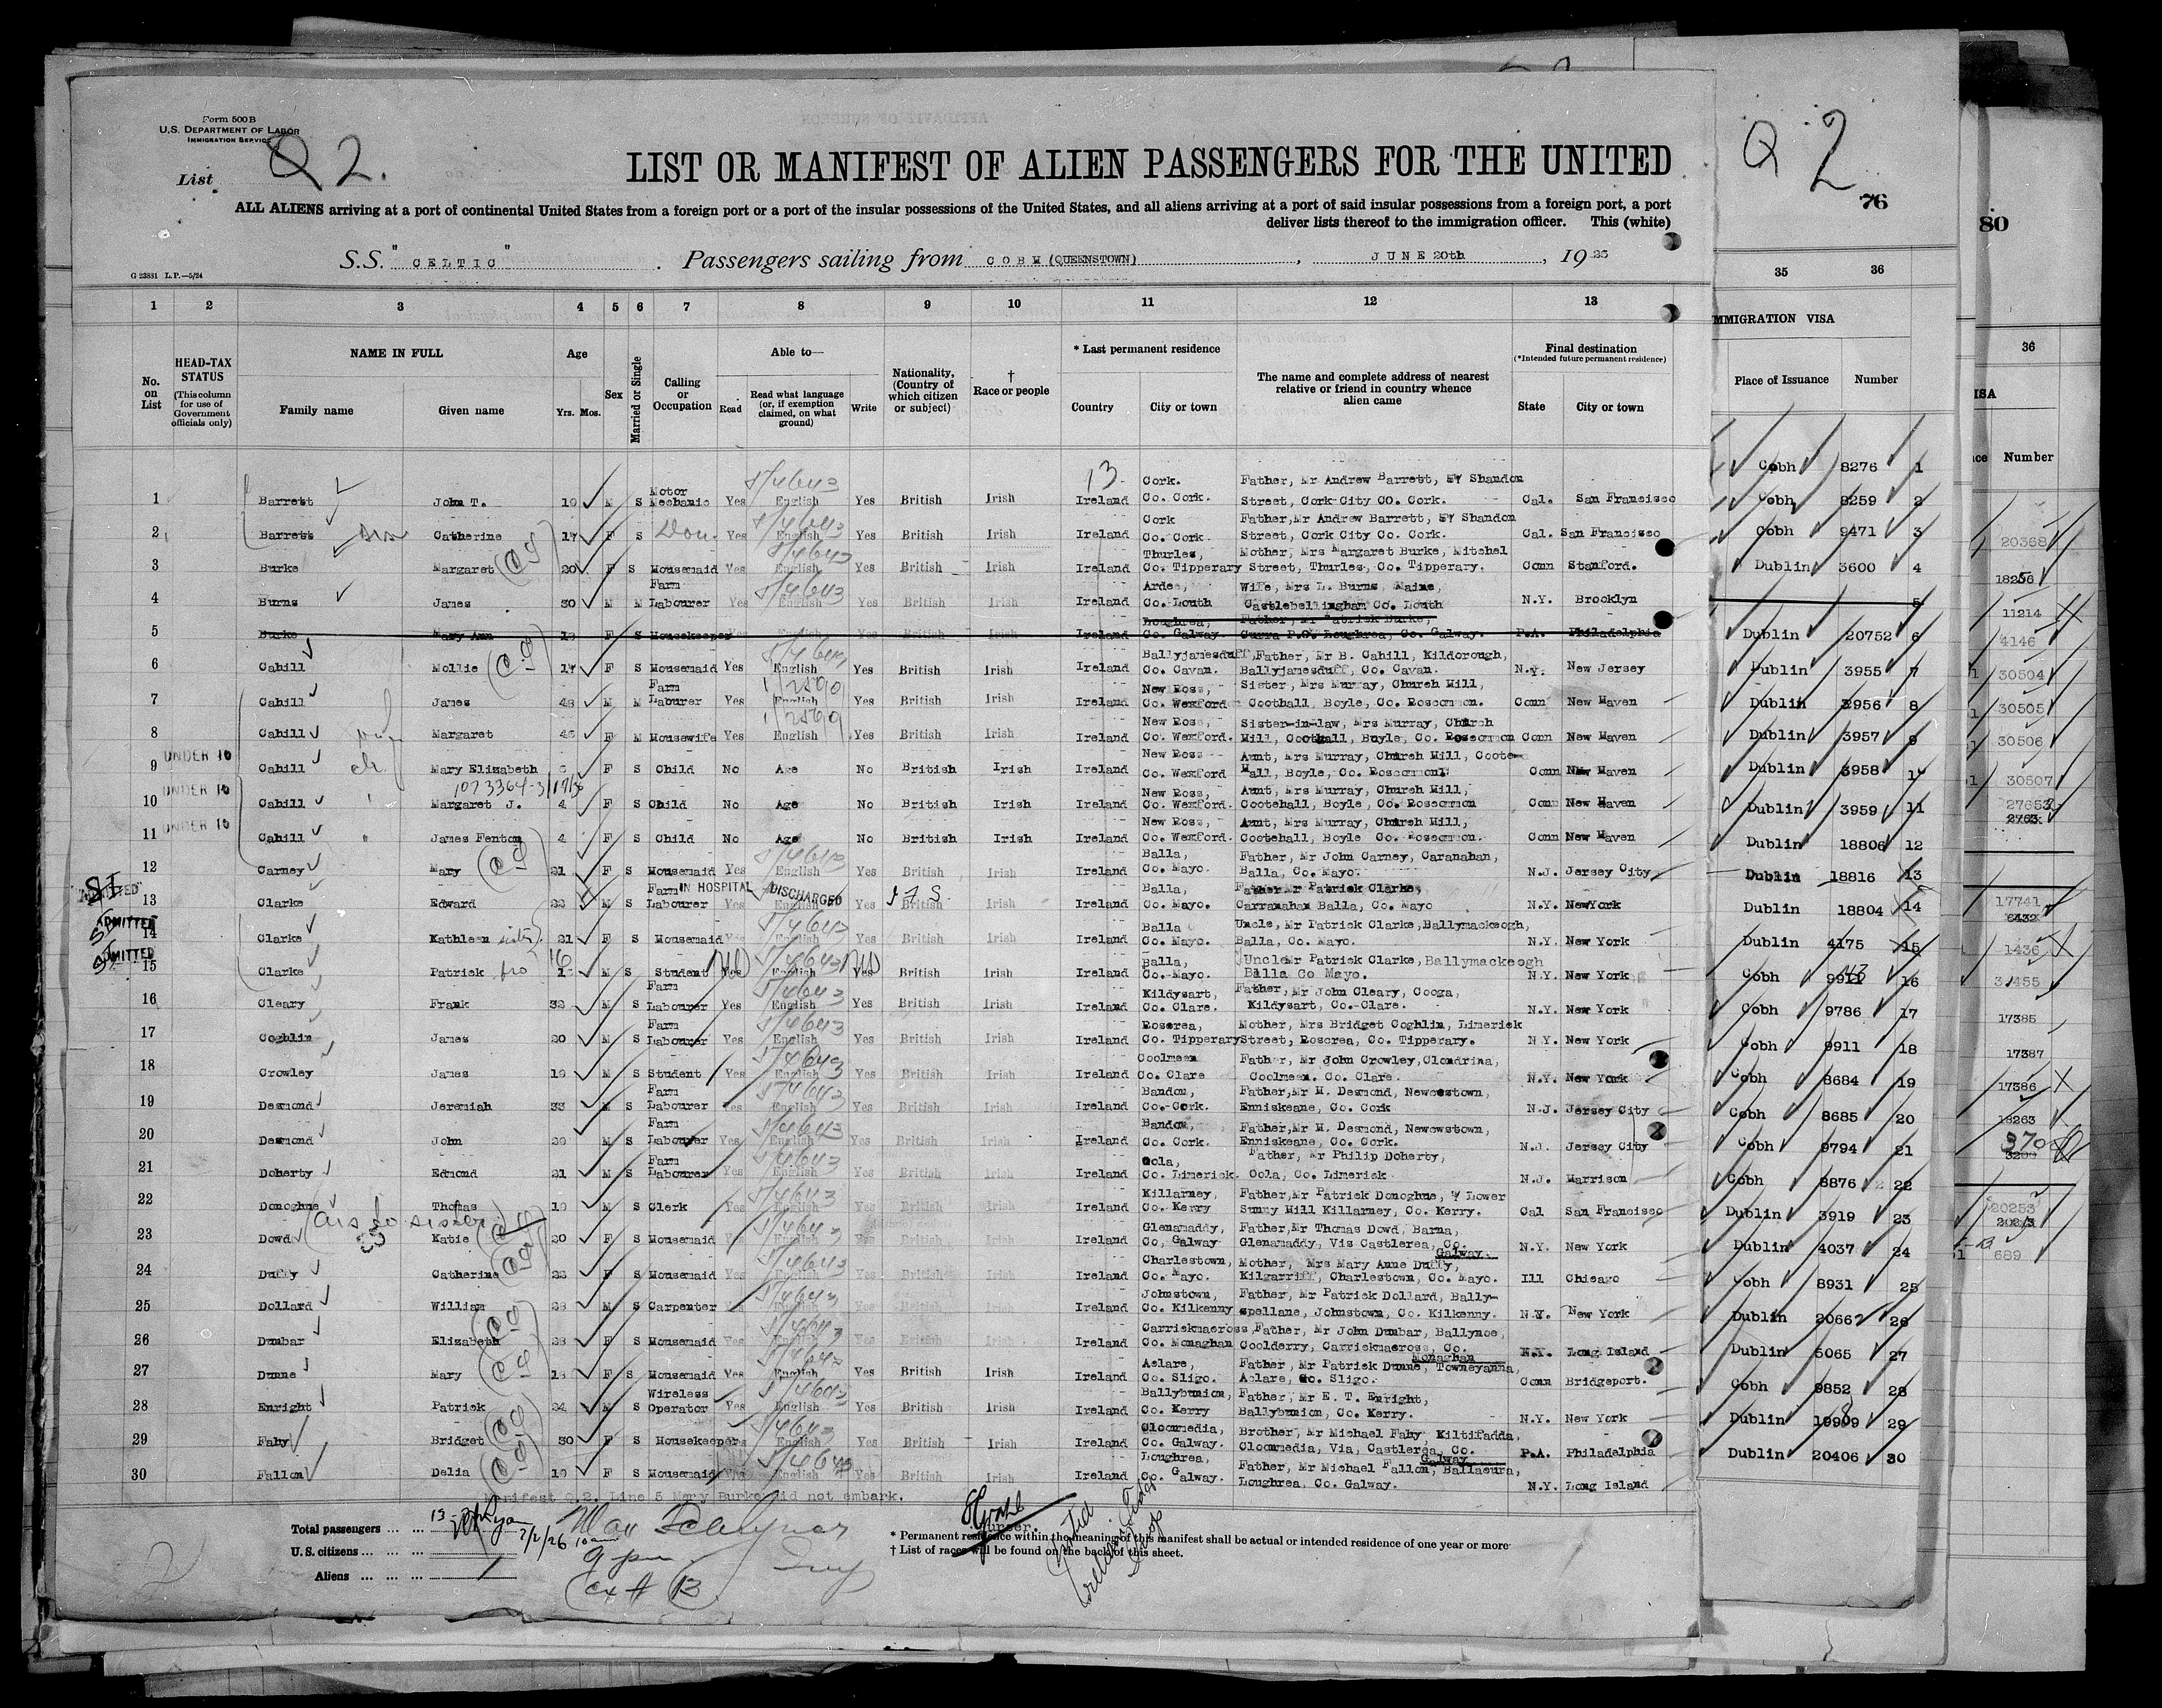 Form 500 B
U.S. DEPARTMENT OF LABOR
IMMIGRATION SERVICE
List Q 2.
LIST OR MANIFEST OF ALIEN PASSENGERS FOR THE UNITED
ALL ALIENS arriving at a port of continental United States from a foreign port or a port of the insular possessions of the United States, and all aliens arriving at a port of said insular possessions from a foreign port, a port
deliver lists thereof to the immigration officer. This (white)
G 23881 L.P.—5/24
S.S. "CELTIC". Passengers sailing from COBH (QUEENSTOWN), JUNE 20th, 19
1 2 3 4 5 6 7 8 9 10 11 12 13
No. on List
HEAD-TAX STATUS (This column for use of Government officials only)
NAME IN FULL Family name Given name
Age Yrs. Mos.
Sex
Married or Single
Calling or Occupation
Able to— Read Read what language (or, if exemption claimed, on what ground) Write
Nationality, (Country of which citizen or subject)
† Race or people
* Last permanent residence Country City or town
The name and complete address of nearest relative or friend in country whence alien came
Final destination (*Intended future permanent residence) State City or town
1 Barrett John T. 19 M S Motor Mechanic Yes English Yes British Irish Ireland Cork. Co. Cork. Father, Mr Andrew Barrett, Shandon Street, Cork City Co. Cork. Cal. San Francisco
2 Barrett Catherine 17 F S Yes English Yes British Irish Ireland Cork Co. Cork. Father, Mr Andrew Barrett, Shandon Street, Cork City Co. Cork. Cal. San Francisco
3 Burke Margaret 20 F S Housemaid Yes English Yes British Irish Ireland Thurles, Co. Tipperary Mother, Mrs Margaret Burke, Mitchel Street, Thurles, Co. Tipperary. Conn Stanford.
4 Burns James 30 M M Farm Labourer Yes English Yes British Irish Ireland Ardee, Co. Louth Wife, Mrs L. Burns, Maine, Castlebellingham Co. Louth N.Y. Brooklyn
5 Burke Mary Ann F S Housekeeper Yes English Yes British Irish Ireland Loughrea, Co. Galway. Father, Mr Patrick Burke, Curra P.O. Loughrea, Co. Galway. P.A. Philadelphia
6 Cahill Mollie 17 F S Housemaid Yes English Yes British Irish Ireland Ballyjamesduff, Co. Cavan. Father, Mr B. Cahill, Kildorough, Ballyjamesduff, Co. Cavan. N.Y. New Jersey
7 Cahill James 48 M M Farm Laburer Yes English Yes British Irish Ireland New Ross, Co. Wexford Sister, Mrs Murray, Church Mill, Coothall, Boyle, Co. Roscommon. Conn New Haven
8 Cahill Margaret F M Housewife Yes English Yes British Irish Ireland New Ross, Co. Wexford. Sister-in-law, Mrs Murray, Church Mill, Coothall, Boyle, Co. Roscommon Conn New Haven
UNDER 16
9 Cahill Mary Elizabeth F S Child No Age No British Irish Ireland New Ross Co. Wexford Aunt, Mrs Murray, Church Mill, Coote Hall, Boyle, Co. Roscommon Conn New Haven
UNDER 16
10 Cahill Margaret J. 4 F S Child No Age No British Irish Ireland New Ross, Co. Wexford. Aunt, Mrs Murray, Church Mill, Cootehall, Boyle, Co. Roscommon Conn New Haven
UNDER 16
11 Cahill James Fenton 4 F S Child No Age No British Irish Ireland New Ross, Co. Wexford. Aunt, Mrs Murray, Church Mill, Cootehall, Boyle Co. Roscommon. Conn New Haven
12 Carney Mary 21 F S Housemaid Yes English Yes British Irish Ireland Balla, Co. Mayo. Father, Mr John Carney, Caranahan, Balla, Co. Mayo. N.J. Jersey City
ADMITTED IN HOSPITAL DISCHARGED
13 Clarke Edward M S Farm Labourer Yes English Yes British Irish Ireland Balla, Co. Mayo. Father Mr Patrick Clarke, Carranahan Balla, Co. Mayo N.Y. New York
ADMITTED
14 Clarke Kathleen sister 21 F S Housemaid Yes English Yes British Irish Ireland Balla Co. Mayo. Uncle, Mr Patrick Clarke, Ballymackeogh, Balla, Co. Mayo. N.Y. New York
ADMITTED
15 Clarke Patrick bro 16 M S Student Yes English Yes British Irish Ireland Balla, Co. Mayo. Uncle Mr Patrick Clarke, Ballymackeogh Balla Co Mayo. N.Y. New York
16 Cleary Frank 32 M S Farm Labourer Yes English Yes British Irish Ireland Kildysart, Co. Clare. Father, Mr John Cleary, Cooga, Kildysart, Co. Clare. N.Y. New York
17 Coghlin James 20 M S Farm Labourer Yes English Yes British Irish Ireland Roscrea, Co. Tipperary Mother, Mrs Bridget Coghlin, Limerick Street, Roscrea, Co. Tipperary. N.Y. New York
18 Crowley James 19 M S Student Yes English Yes British Irish Ireland Coolmeen Co. Clare Father, Mr John Crowley, Clondrina, Coolmeen. Co. Clare. N.Y. New York
19 Desmond Jeremiah 33 M S Farm Labourer Yes English Yes British Irish Ireland Bandon, Co. Cork. Father, Mr M. Desmond, Newcestown, Enniskeane, Co. Cork N.J. Jersey City
20 Desmond John M S Farm Labourer Yes English Yes British Irish Ireland Bandon, Co. Cork. Father, Mr M. Desmond, Newcwstown, Enniskeane, Co. Cork. N.J. Jersey City
21 Doherty Edmond 21 M S Farm Labourer Yes English Yes British Irish Ireland Oola, Co. Limerick. Father, Mr Philip Doherty, Oola, Co. Limerick N.J. Harrison
22 Donoghue Thomas 19 M S Clerk Yes English Yes British Irish Ireland Killarney, Co. Kerry Father, Mr Patrick Donoghue, Lower Sunny Hill Killarney, Co. Kerry. Cal San Francisco
23 Dowd Katie 20 F S Housemaid Yes English Yes British Irish Ireland Glenamaddy, Co, Galway Father, Mr Thomas Dowd, Barna, Glenamaddy, Vis Castlerea, Co. Galway. N.Y. New York
24 Duffy Catherine F S Housemaid Yes English Yes British Irish Ireland Charlestown, Co. Mayo. Mother, Mrs Mary Anne Duffy, Kilgarriff, Charlestown, Co. Mayo. Ill Chicago
25 Dollard William 28 M S Carpenter Yes English Yes British Irish Ireland Johnstown, Co. Kilkenny Father, Mr Patrick Dollard, Bally-spellane, Johnstown, Co. Kilkenny. N.Y. New York
26 Dunbar Elizabeth 28 F S Housemaid Yes English Yes British Irish Ireland Carrickmacross, Co. Monaghan Father, Mr John Dunbar, Ballynoe, Coolderry, Carrickmacross, Co. Monaghan N.Y. Long Island
27 Dunne Mary 18 F S Housemaid Yes English Yes British Irish Ireland Aclare, Co. Sligo. Father, Mr Patrick Dunne, Towneyanna, Aclare, Co. Sligo. Conn Bridgeport.
28 Enright Patrick 24 M S Wireless Operator Yes English Yes British Irish Ireland Ballybunion, Co. Kerry Father, Mr E. T. Enright, Ballybunion, Co. Kerry. N.Y. New York
29 Fahy Bridget 30 F S Housekeeper Yes English Yes British Irish Ireland Cloonmedia, Co. Galway. Brother, Mr Michael Fahy, Kiltifadda, Cloonmedia, Via, Castlerea, Co. Galway P.A. Philadelphia
30 Fallon Delia 19 F S Housemaid Yes English Yes British Irish Ireland Loughrea, Co. Galway. Father, Mr Michael Fallon, Ballaeura, Loughrea, Co. Galway. N.Y. Long Island
Manifest Q.2. Line 5 Mary Burke did not embark.
Purser.
Total passengers
U.S. citizens
Aliens
* Permanent residence within the meaning of this manifest shall be actual or intended residence of one year or more
† List of races will be found on the back of this sheet.
Q 2
76
35 36
IMMIGRATION VISA
Place of Issuance Number
Cobh 8276 1
Cobh 8259 2
Cobh 9471 3
Dublin 3600 4
5
Dublin 20752 6
Dublin 3955 7
Dublin 3956 8
Dublin 3957 9
Dublin 3958 10
Dublin 3959 11
Dublin 18806 12
Dublin 18816 13
Dublin 18804 14
Dublin 4175 15
Cobh 16
Cobh 9786 17
Cobh 9911 18
Cobh 8684 19
Cobh 8685 20
Cobh 9794 21
Cobh 8876 22
Dublin 3919 23
Dublin 4037 24
Cobh 8931 25
Dublin 20662 26
Dublin 5065 27
Cobh 9852 28
Dublin 29
Dublin 20406 30
80
36
ISA
Number
20368
11214
4146
30504
30505
30506
30507
17741
1436
17385
17387
17386
18263
370
20253
689